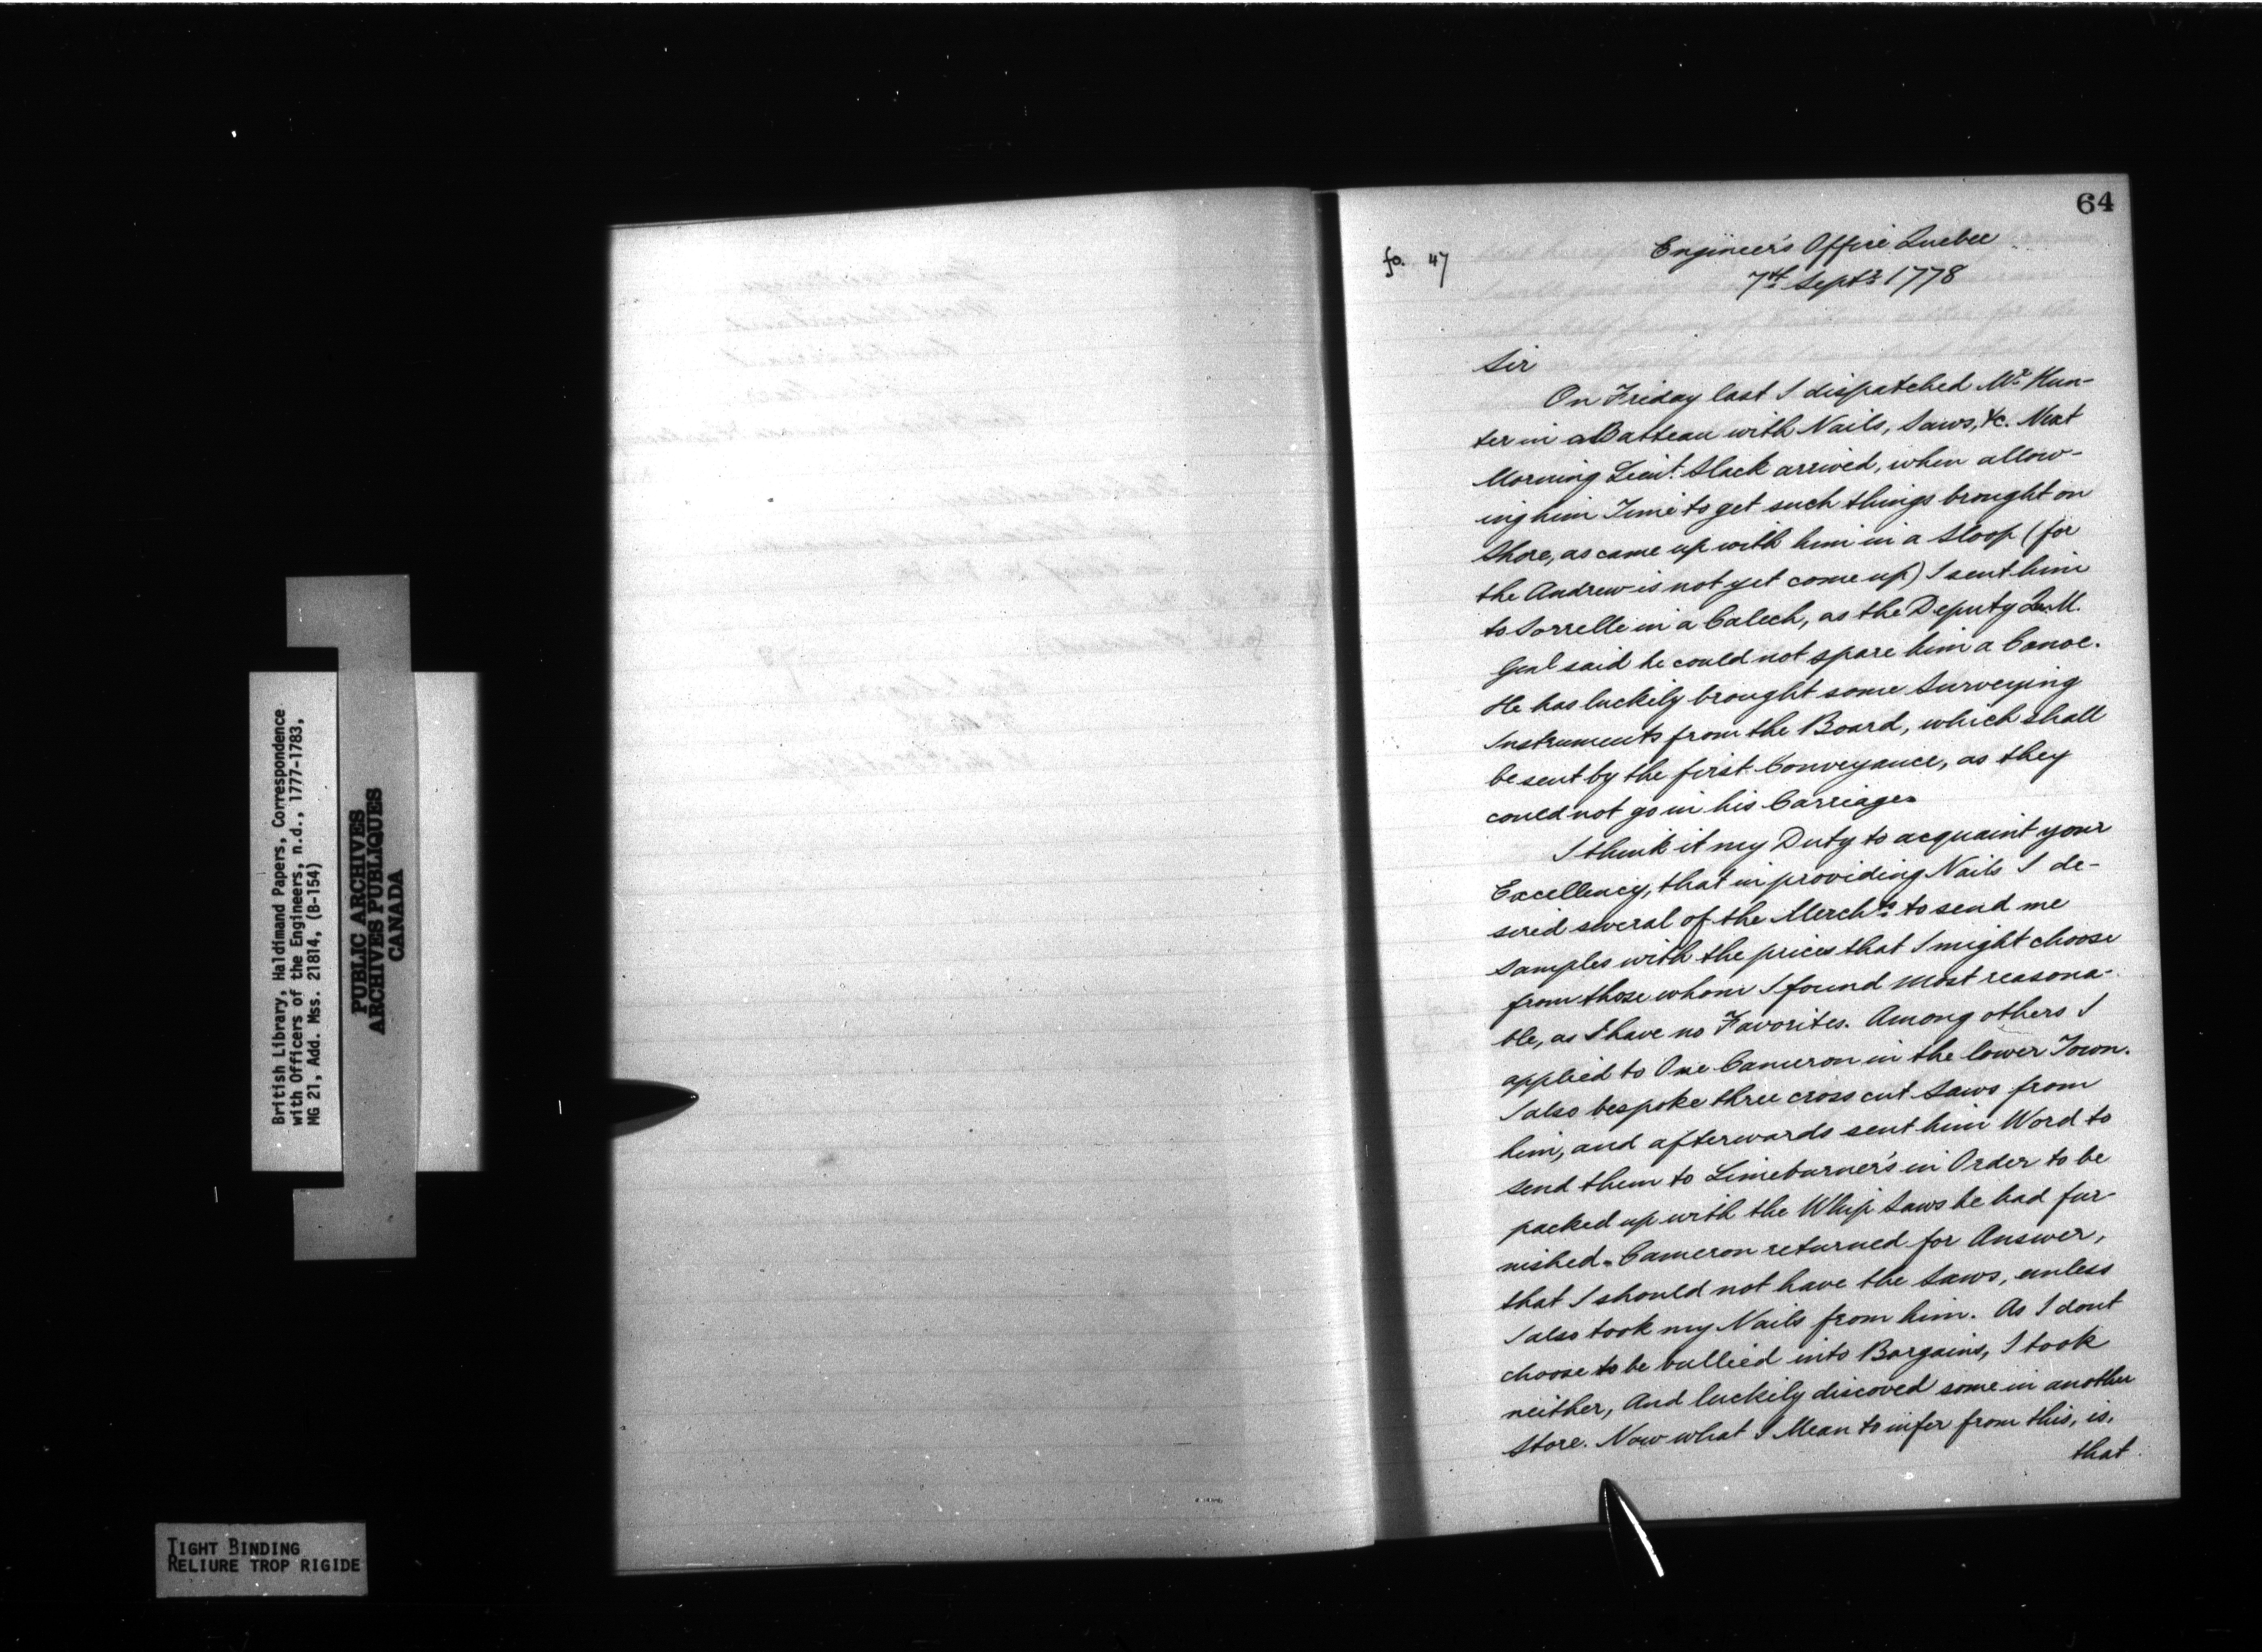 64
fo. 47
Engineer's Office Quebec
7th Septr 1778
Sir
On Friday last I dispatched Mr Hun-
ter in a Batteau with Nails, Saws, &c. Next
Morning Lieut. Slack arrived, when allow-
ing him Time to get such things brought on
Shore, as came up with him in a Sloop (for
the Andrew is not yet come up) I sent him
to Sorrelle in a Calech, as the Deputy Qr. M.
Genl said he could not spare him a Canoe.
He has luckily brought some Surveying
Instruments from the Board, which shall
be sent by the first Conveyance, as they
could not go in his Carriage.
I think it my Duty to acquaint your
Excellency, that in providing Nails I de-
sired several of the Merchts to send me
Samples with the prices that I might choose
from those whom I found most reasona-
ble, as I have no Favorites. Among others I
applied to One Cameron in the lower Town.
I also bespoke three cross cut Saws from
him, and afterwards sent him Word to
send them to Limeburner's in Order to be
packed up with the Whip Saws he had fur-
nished. Cameron returned for Answer,
that I should not have the Saws, unless
I also took my Nails from him. As I dont
choose to be bullied into Bargains, I took
neither, And luckily discoved some in another
Store. Now what I Mean to infer from this, is,
that
British Library, Haldimand Papers, Correspondence
with Officers of the Engineers, n.d., 1777-1783,
MG 21, Add. Mss. 21814, (B-154)
PUBLIC ARCHIVES
ARCHIVES PUBLIQUES
CANADA
TIGHT BINDING
RELIURE TROP RIGIDE